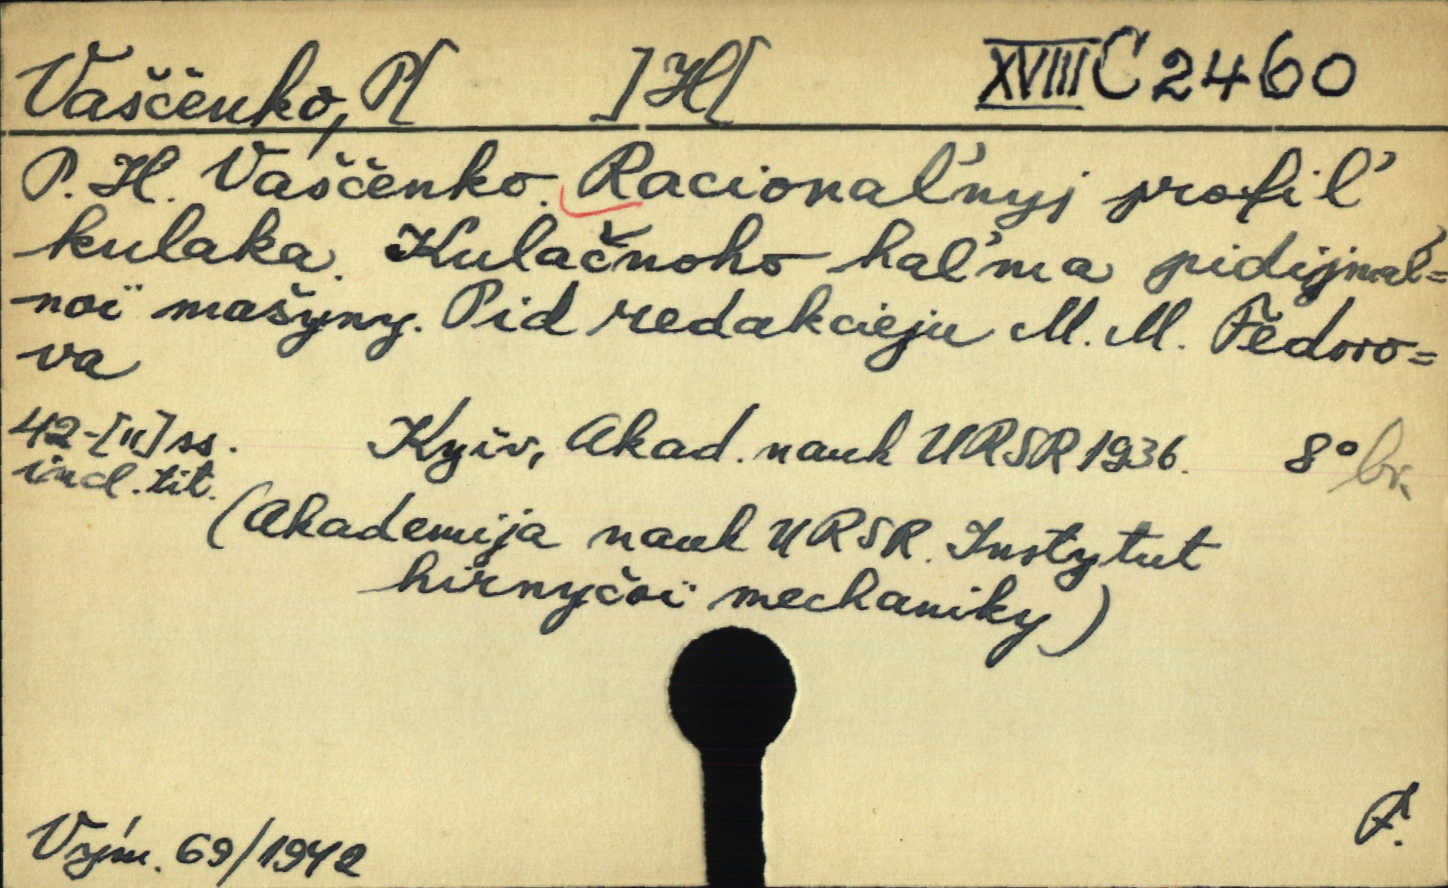 Vaščenko, P[ ]H[ XVIII C 2460
P. H. Vaščenko. Racional'nyj profil'
kulaka. Kulačnoho hal'ma pidijmal'=
noï mašyny. Pid redakcieju M. M. Fedoro=
va
42-[II] ss. Kyïv, Akad. nauk URSR 1936. 8° br.
incl. tit.
(Akademija nauk URSR. Instytut
hirnyčoï mechaniky)
Vým. 69/1942